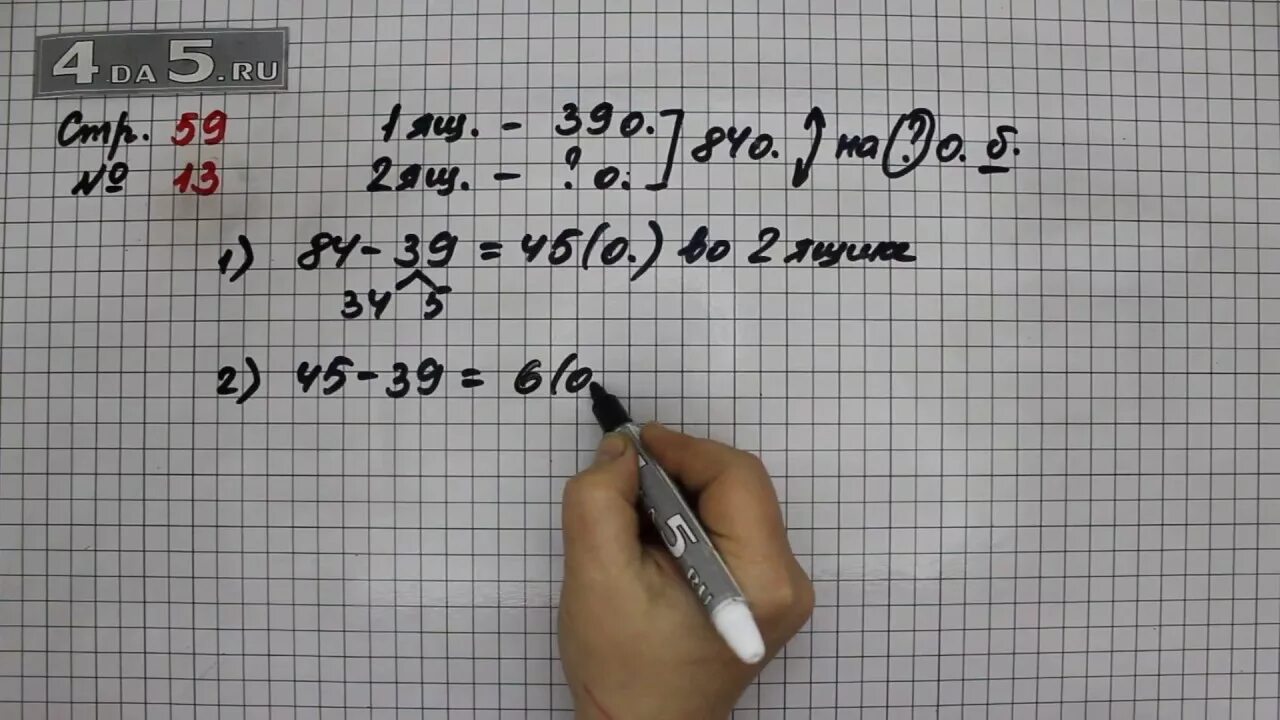 4DA5.RU
Стр. 59
№ 13
1 ящ. - 39 о.
2 ящ. - ? о.
] 84 о. на (?) о. б.
1) 84 - 39 = 45 (о.) во 2 ящике
34 5
2) 45 - 39 = 6 (о.
5.RU